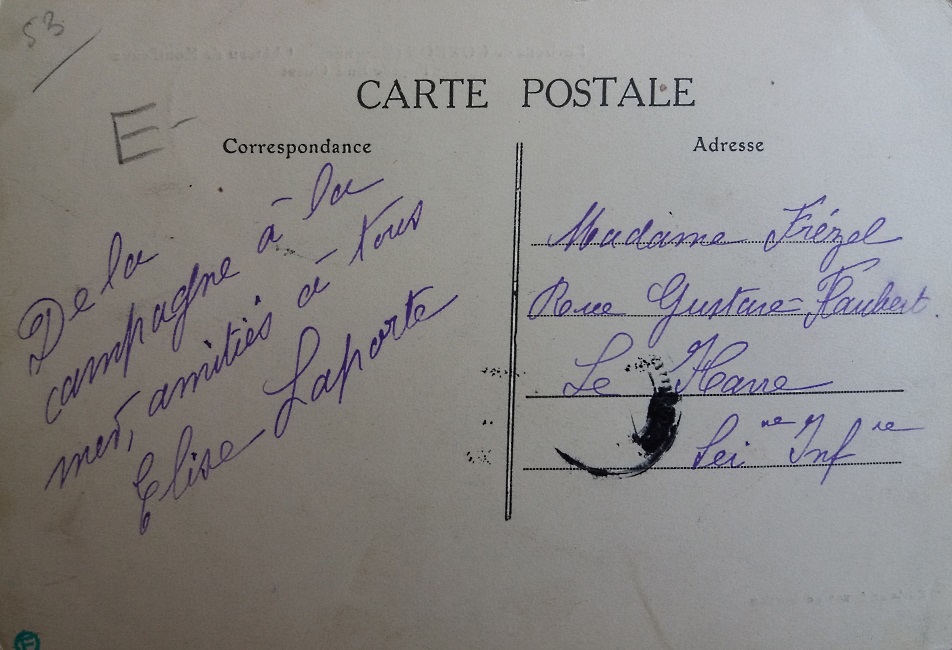 53
CARTE POSTALE
E-
Correspondance
Adresse
De la
campagne à la
mer, amitiés à tous
Elise Laporte
Madame Frézel
Rue Gustave-Flaubert.
Le Havre
Sei ne Inf re